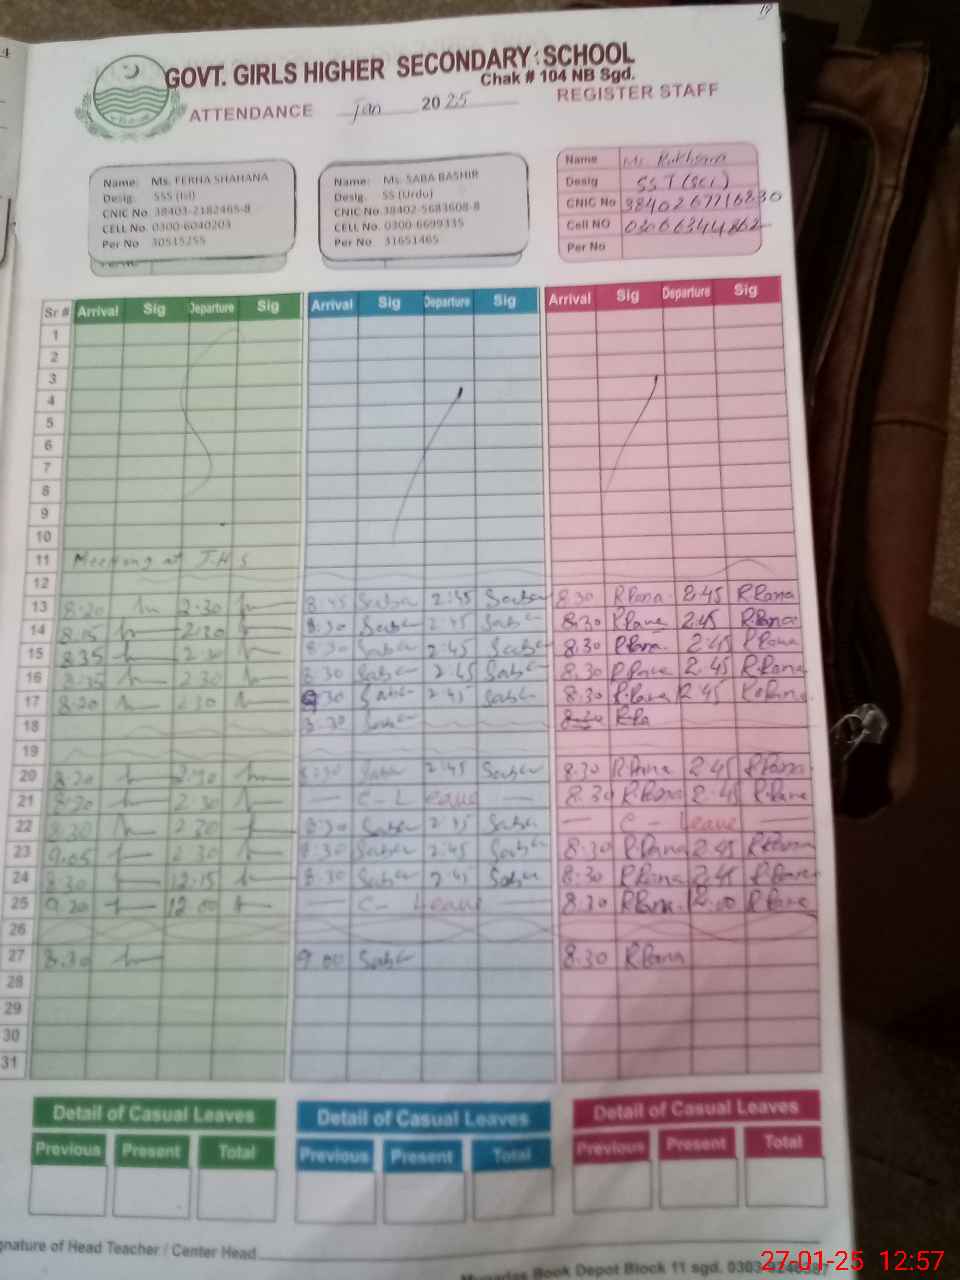 19
4
GOVT. GIRLS HIGHER SECONDARY SCHOOL
Chak # 104 NB Sgd.
ATTENDANCE Jan 2025 REGISTER STAFF
Name: Ms. FERHA SHAHANA
Desig. SSS (Isl)
CNIC No. 38403-2182465-8
CELL No. 0300-6040203
Per No 30515255
Name: Ms. SABA BASHIR
Desig. SS (Urdu)
CNIC No. 38402-5683608-8
CELL No. 0300-6699335
Per No 31651465
Name Ms. Rukhsana
Desig SST (Sci)
CNIC No 3840267716830
Cell NO 03066344862
Per No
Sr # Arrival Sig Departure Sig Arrival Sig Departure Sig Arrival Sig Departure Sig
1
2
3
4
5
6
7
8
9
10
11 Meeting at
12
13 8:20 2:30 8:45 Saba 2:45 Saba 8:30 R.Rana 2:45 R.Rana
14 8:15 2:30 8:30 Saba 2:45 Saba 8:30 R.Rana 2:45 R.Rana
15 8:35 8:30 Saba 2:45 Saba 8:30 R.Rana 2:45 R.Rana
16 8:35 2:30 8:30 Saba 2:45 Saba 8:30 R.Rana 2:45 R.Rana
17 8:20 2:30 :30 Saba 2:45 Saba 8:30 R.Rana 2:45 R.Rana
18 8:30 Saba 8:30
19
20 8:20 2:30 8:30 Saba 2:45 Saba 8:30 R.Rana 2:45 R.Rana
21 8:20 2:30 — C-Leave — 8:30 R.Rana 2:45 R.Rana
22 8:30 2:30 8:30 Saba 2:45 Saba — C-Leave —
23 9:05 2:30 8:30 Saba 2:45 Saba 8:30 R.Rana 2:45 R.Rana
24 8:30 12:15 8:30 Saba 2:45 Saba 8:30 R.Rana 2:45 R.Rana
25 9:20 12:00 — C-Leave — 8:30 R.Rana 12:00 R.Rana
26
27 8:30 9:00 Saba 8:30 R.Rana
28
29
30
31
Detail of Casual Leaves Detail of Casual Leaves Detail of Casual Leaves
Previous Present Total Previous Present Total Previous Present Total
gnature of Head Teacher / Center Head
Book Depot Block 11 sgd. 0303
27-01-25 12:57